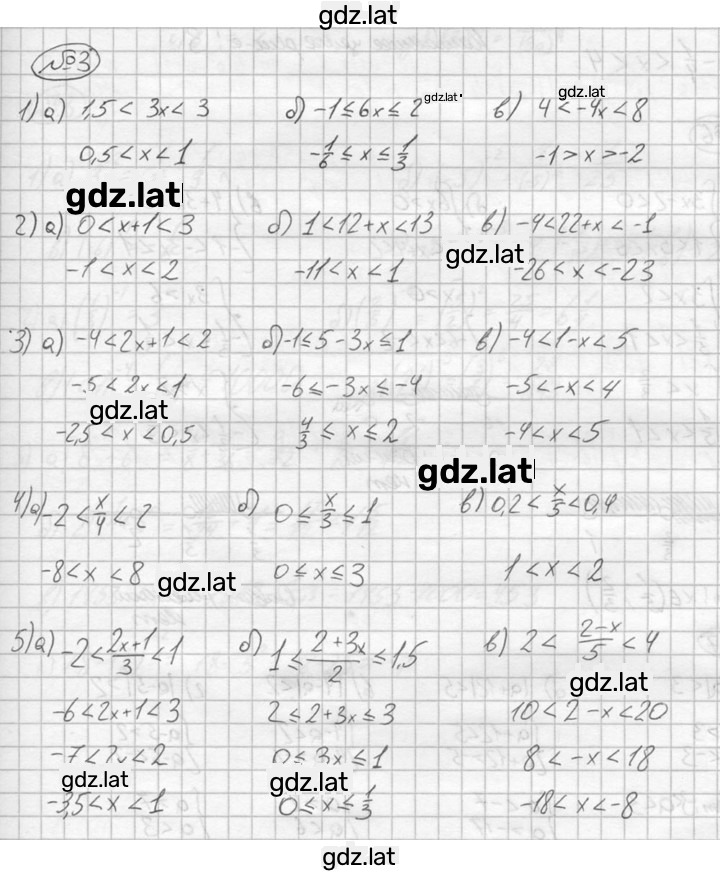 gdz.lat
№3
1) а) 1,5 < 3x < 3 б) -1 ≤ 6x ≤ 2 gdz.lat в) 4 < -4x < 8 gdz.lat
0,5 < x < 1 -1/6 ≤ x ≤ 1/3 -1 > x > -2
gdz.lat
2) а) 0 < x+1 < 3 б) 1 < 12+x < 13 в) -4 < 22+x < -1
gdz.lat
-1 < x < 2 -11 < x < 1 -26 < x < -23
3) а) -4 < 2x+1 < 2 б) -1 ≤ 5 - 3x ≤ 1 в) -4 < 1-x < 5
-5 < 2x < 1 -6 ≤ -3x ≤ -4 -5 < -x < 4
gdz.lat
-2,5 < x < 0,5 4/3 ≤ x ≤ 2 -4 < x < 5
gdz.lat
4) а) -2 < x/4 < 2 б) 0 ≤ x/3 ≤ 1 в) 0,2 < x/5 < 0,4
-8 < x < 8 gdz.lat 0 ≤ x ≤ 3 1 < x < 2
5) а) -2 < (2x+1)/3 < 1 б) 1 ≤ (2+3x)/2 ≤ 1,5 в) 2 < (2-x)/5 < 4
gdz.lat
-6 < 2x+1 < 3 2 ≤ 2+3x ≤ 3 10 < 2-x < 20
-7 < 2x < 2 0 ≤ 3x ≤ 1 8 < -x < 18
gdz.lat gdz.lat
-3,5 < x < 1 0 ≤ x ≤ 1/3 -18 < x < -8
gdz.lat